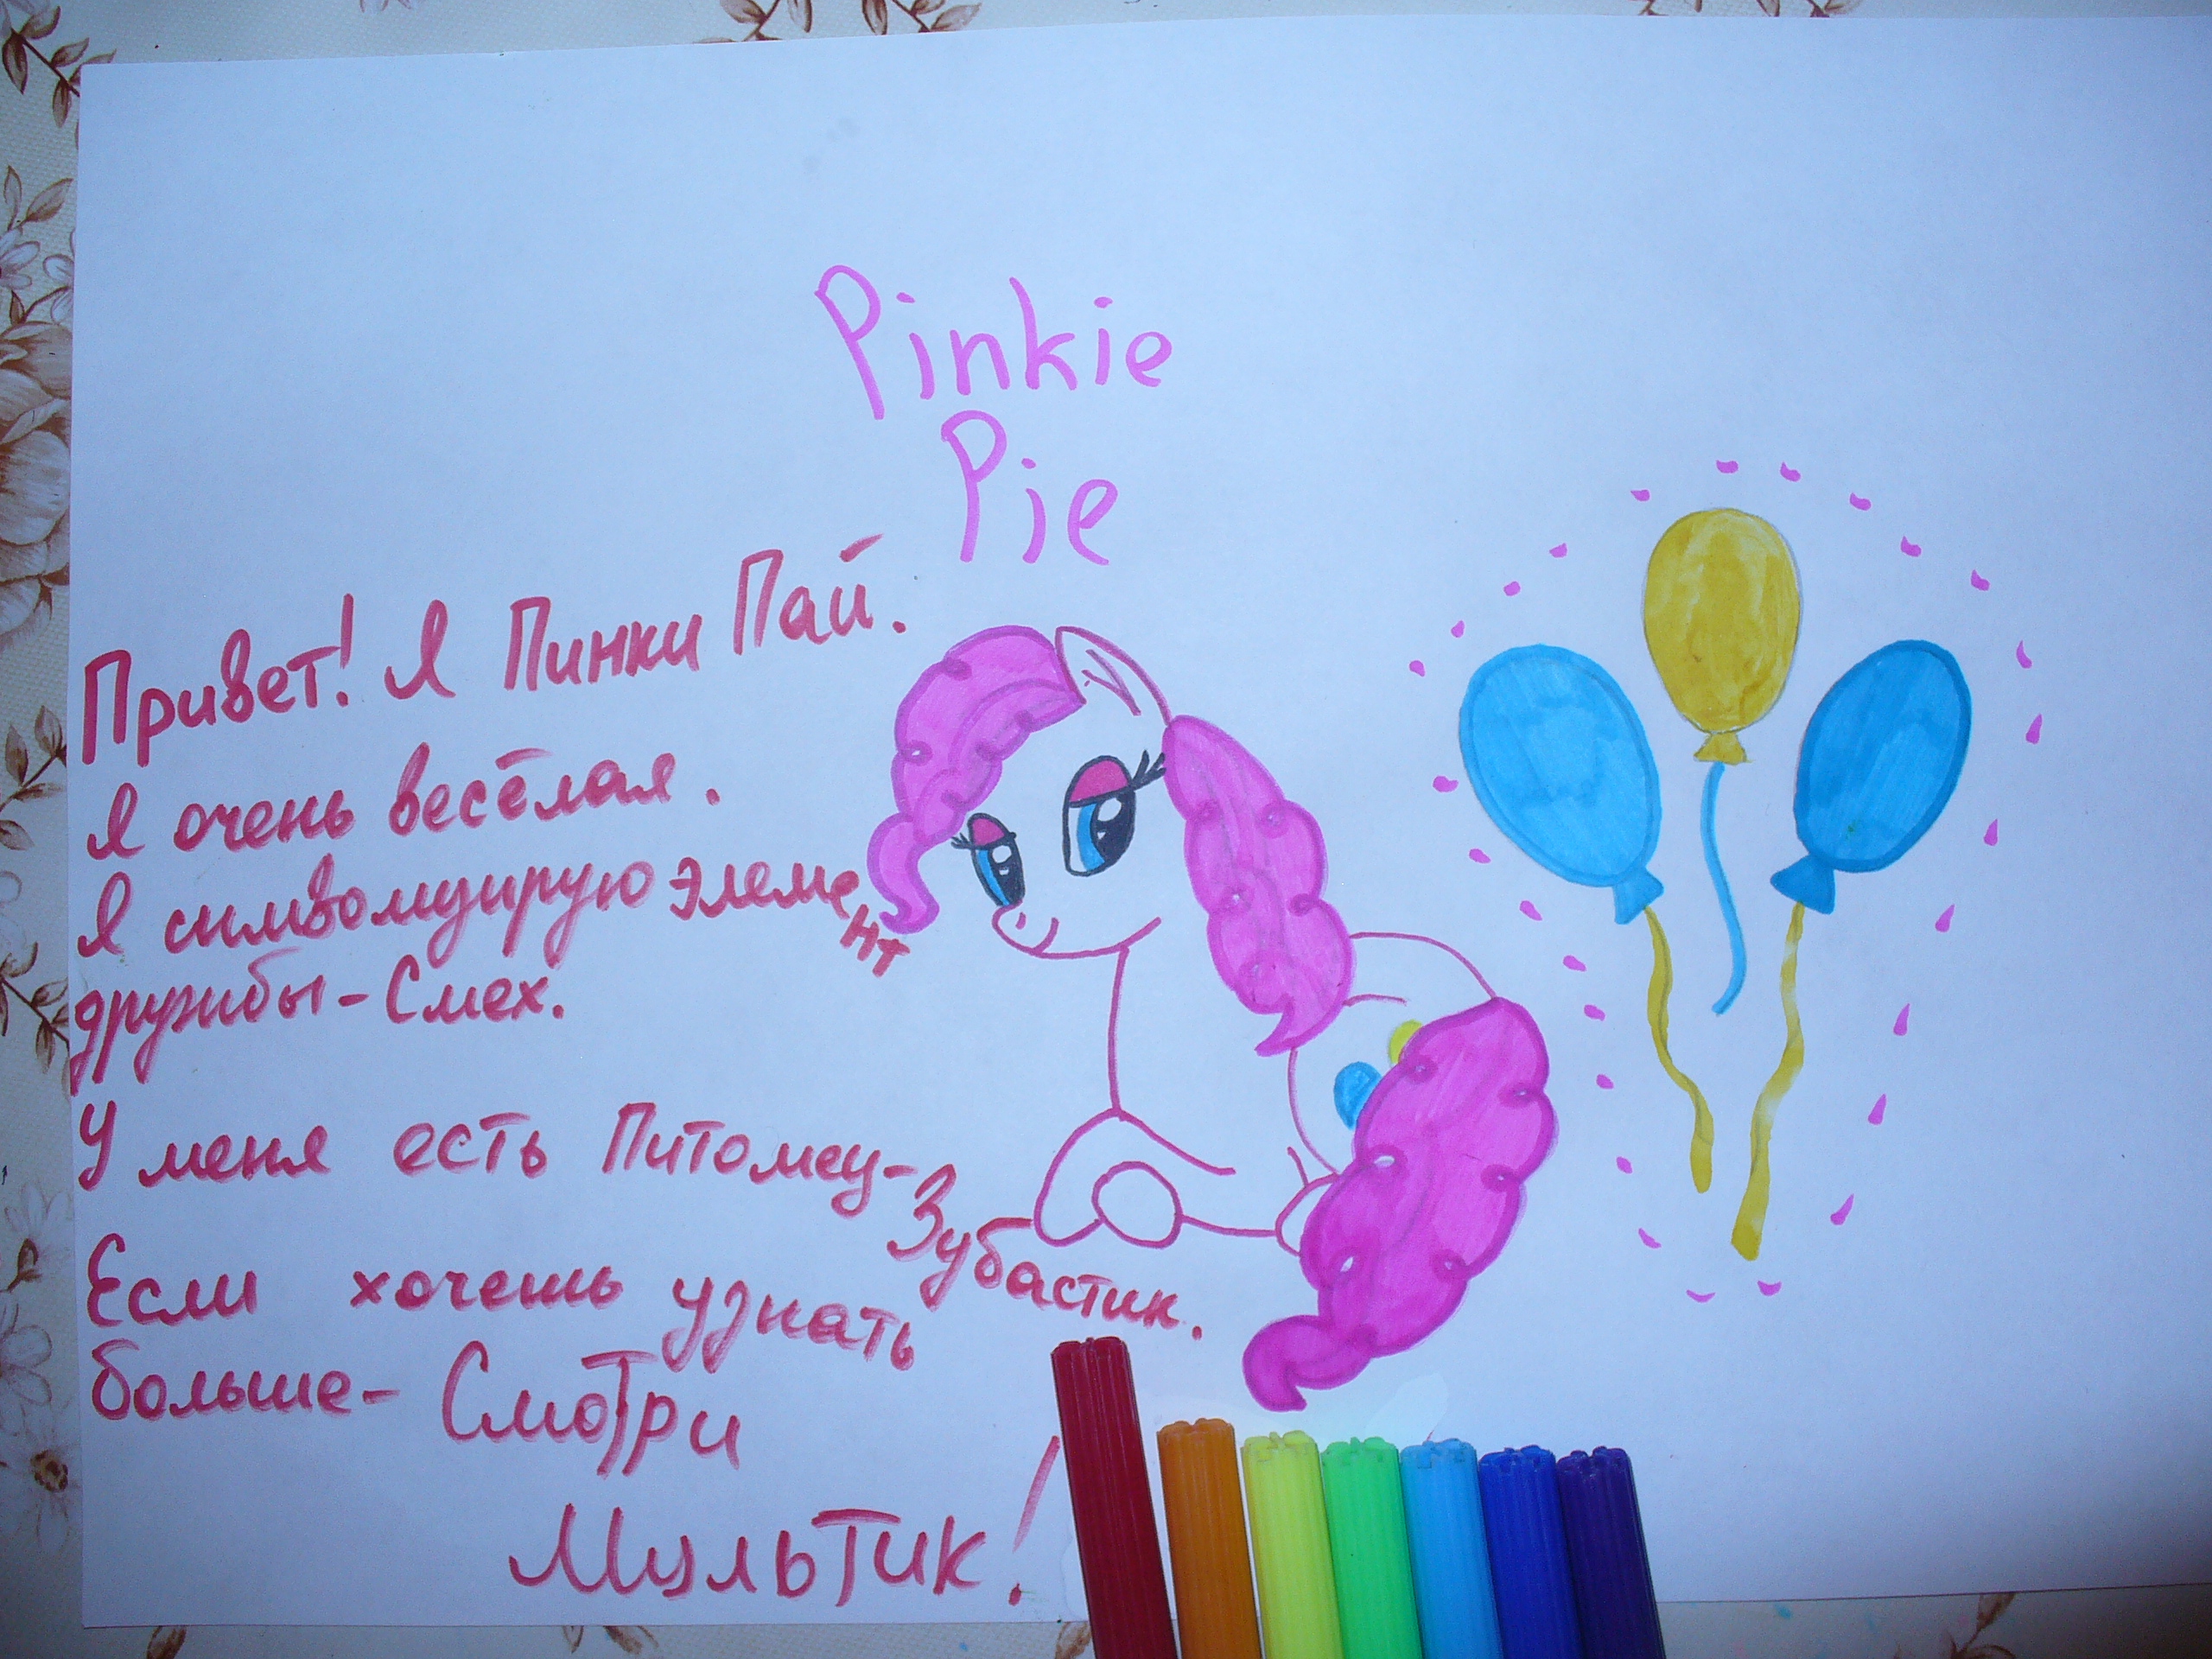 Pinkie
Pie
Привет! Я Пинки Пай.
Я очень весёлая.
Я символизирую элемент
дружбы - Смех.
У меня есть Питомец -
Зубастик.
Если хочешь узнать
больше - Смотри
Мультик!